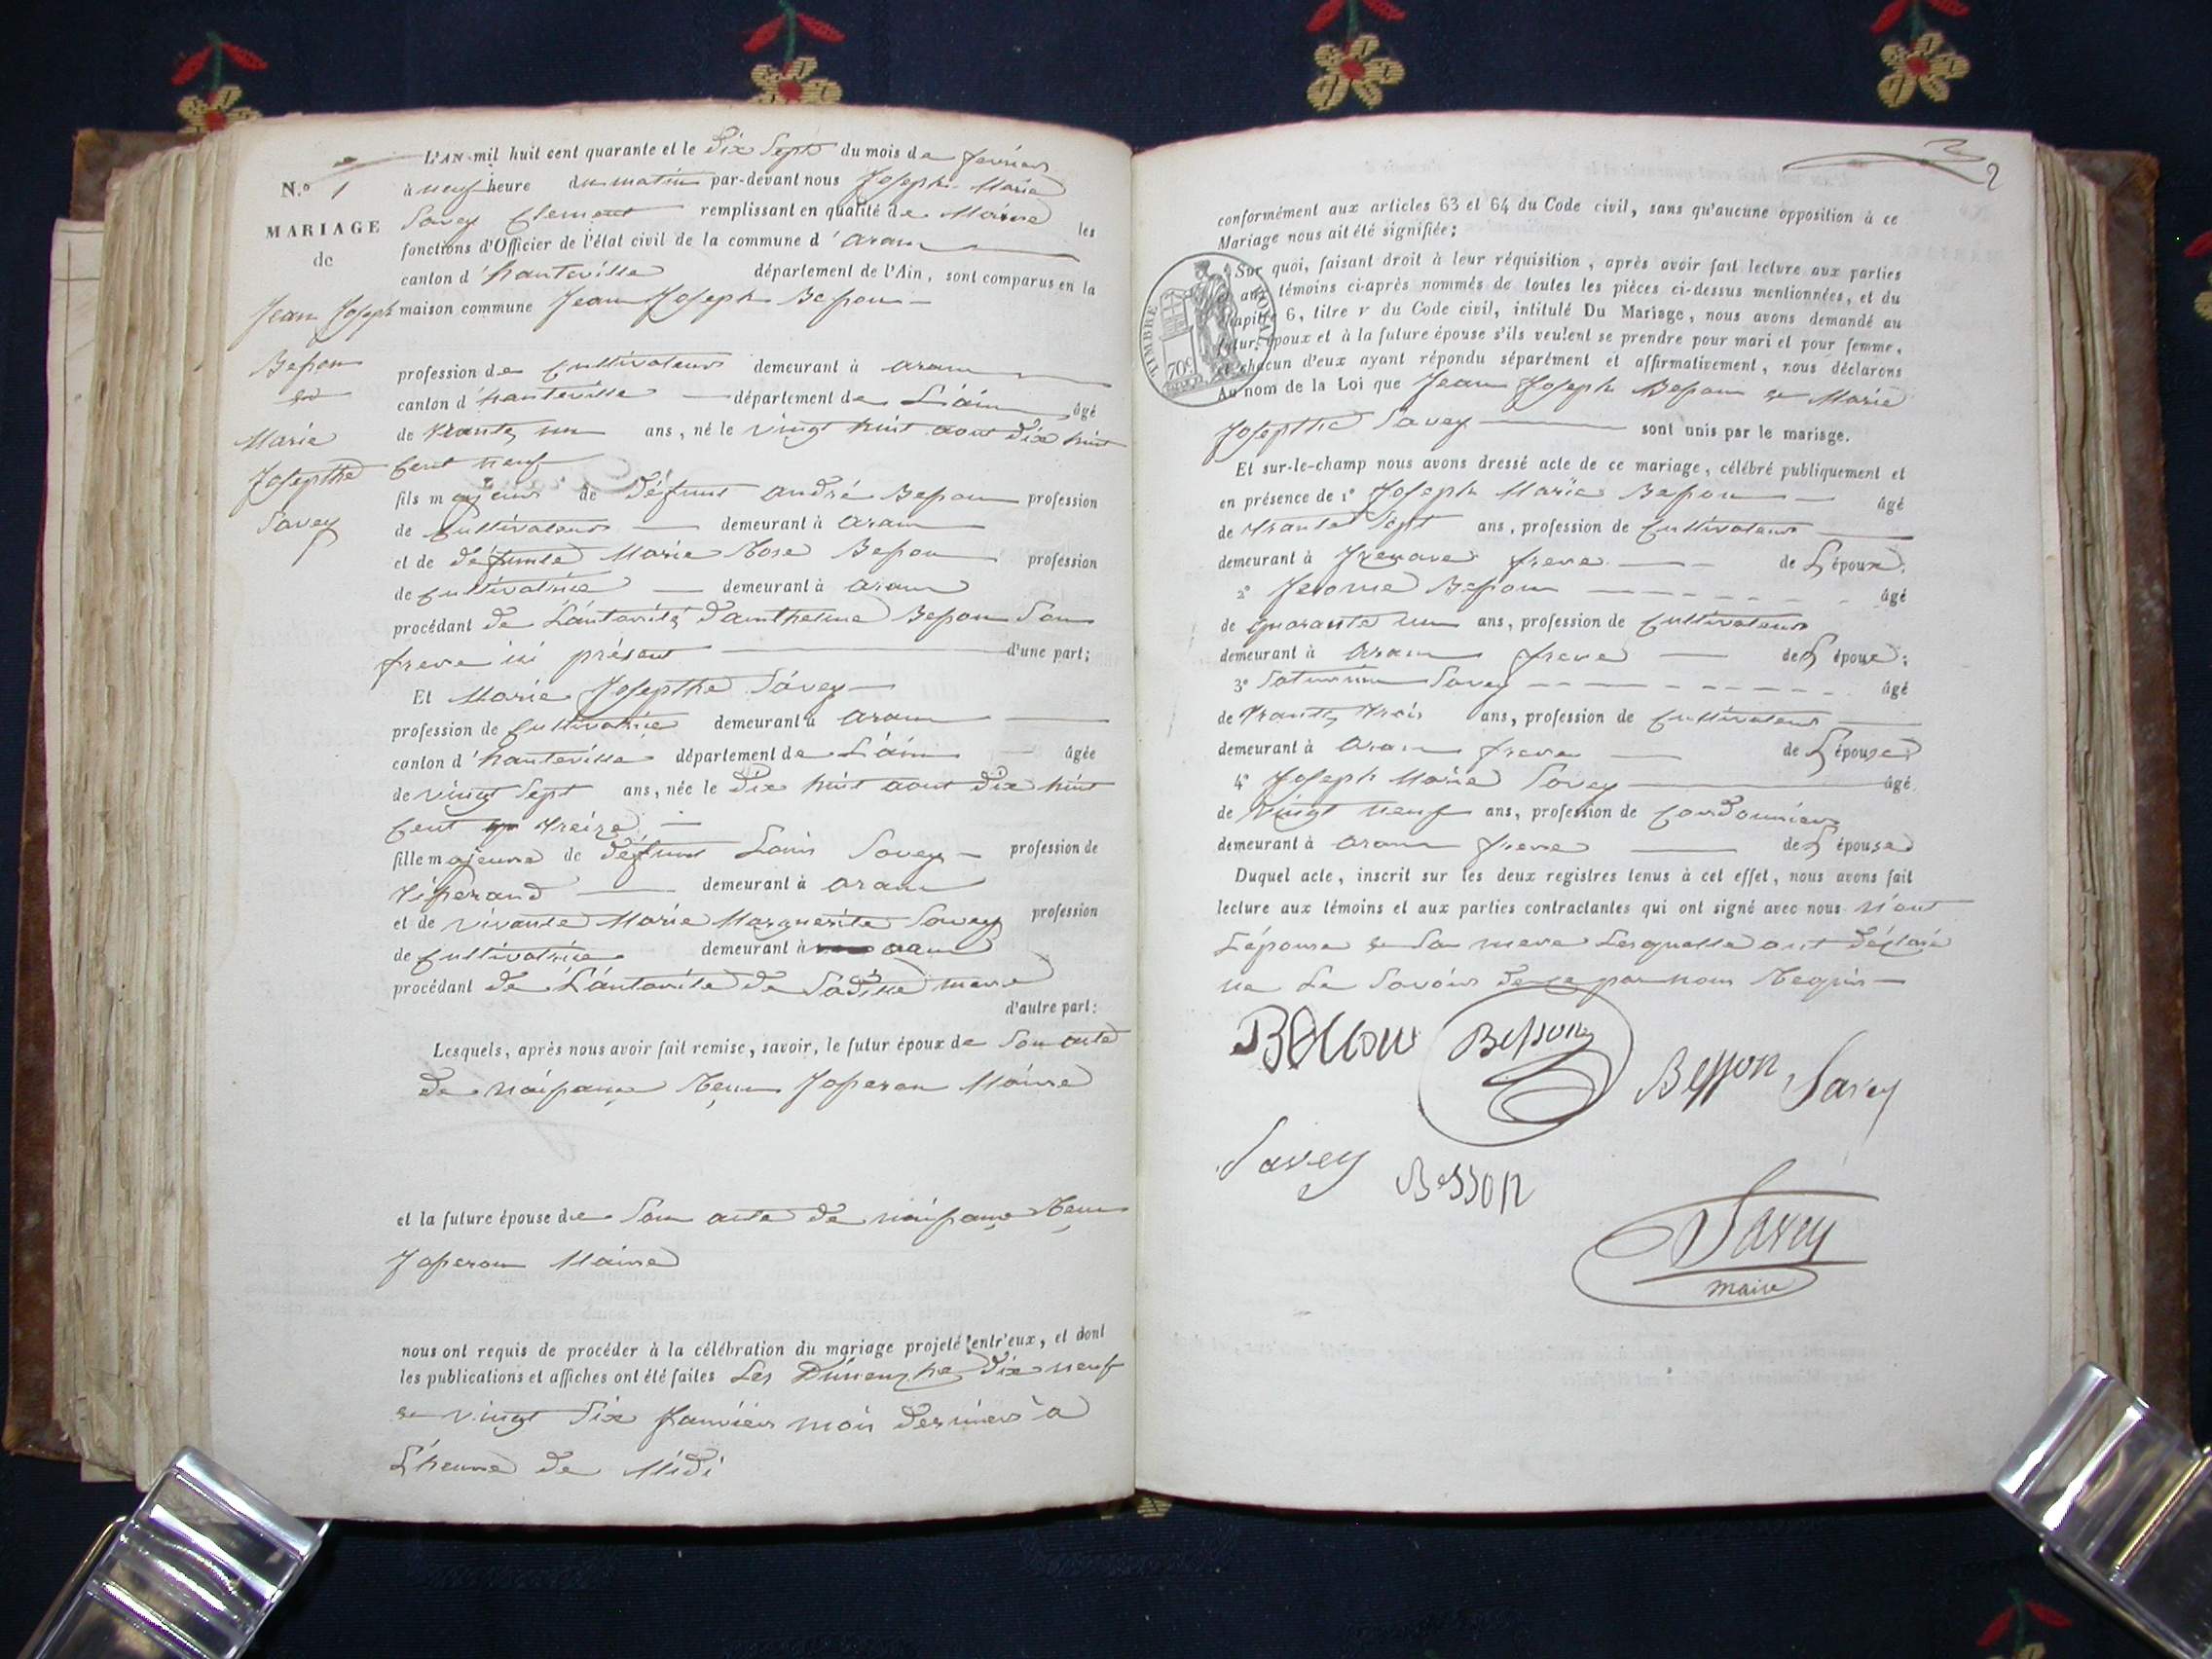 L'AN mil huit cent quarante et le dix Sept du mois de fevrier
N.º 1
à neuf heure du matin par-devant nous Joseph Marie
MARIAGE
Savey Clement remplissant en qualité de Maire les
de
fonctions d'Officier de l'état civil de la commune d'aranc
canton d'hauteville département de l'Ain, sont comparus en la
Jean Joseph
maison commune Jean Joseph Besson
Besson
et
profession de Cultivateur demeurant à aranc
canton d'hauteville département de L'ain âgé
Marie
de trante un ans, né le vingt huit aout dix huit
Josepthe
Cent neuf
Savey
fils majeur de défunt andré Besson profession
de Cultivateur demeurant à aranc
et de défunte Marie Rose Besson profession
de Cultivatrice demeurant à aranc
procédant de L'autorité d'anthelme Besson Son
frere ici présent d'une part;
Et Marie Josepthe Savey
profession de Cultivatrice demeurant à aranc
canton d'hauteville département de L'ain âgée
de vingt Sept ans, née le dix huit aout dix huit
Cent treize
fille majeure de défunt Louis Savey profession de
tisserand demeurant à aranc
et de vivante Marie Marguerite Savey profession
de Cultivatrice demeurant à aranc
procédant de L'autorité de Sadite mere
d'autre part:
Lesquels, après nous avoir fait remise, savoir, le futur époux de Son acte
de naissance Reçu Josseran Maire
et la future épouse de Son acte de naissance Reçu
Josseran Maire
nous ont requis de procéder à la célébration du mariage projeté entr'eux, et dont
les publications et affiches ont été faites Les Dimenche dix neuf
et vingt Six Janvier mois dernier a
L'heure de Midi
2
conformément aux articles 63 et 64 du Code civil, sans qu'aucune opposition à ce
Mariage nous ait été signifiée;
Sur quoi, faisant droit à leur réquisition, après avoir fait lecture aux parties
et aux témoins ci-après nommés de toutes les pièces ci-dessus mentionnées, et du
chapitre 6, titre v du Code civil, intitulé Du Mariage, nous avons demandé au
futur époux et à la future épouse s'ils veulent se prendre pour mari et pour femme,
et chacun d'eux ayant répondu séparément et affirmativement, nous déclarons
TIMBRE ROYAL
70c
Au nom de la Loi que Jean Joseph Besson et Marie
Josepthe Savey sont unis par le mariage.
Et sur-le-champ nous avons dressé acte de ce mariage, célébré publiquement et
en présence de 1º Joseph Marie Besson âgé
de trante Sept ans, profession de Cultivateur
demeurant à frere de L'époux;
2º Jerome Besson âgé
de quarante un ans, profession de Cultivateur
demeurant à aranc frere de L'époux;
3º Saturnin Savey âgé
de trante trois ans, profession de Cultivateur
demeurant à aranc frere de L'épouse
4º Joseph Marie Savey âgé
de Vingt neuf ans, profession de Cordonnier
demeurant à aranc frere de L'épouse
Duquel acte, inscrit sur les deux registres tenus à cet effet, nous avons fait
lecture aux témoins et aux parties contractantes qui ont signé avec nous n'ont
L'épouse et Sa mere Lesquelle ont déclaré
ne Le Savoir de ce par nous Requis
Besson Besson Besson Savey
Savey Besson
Savey
maire